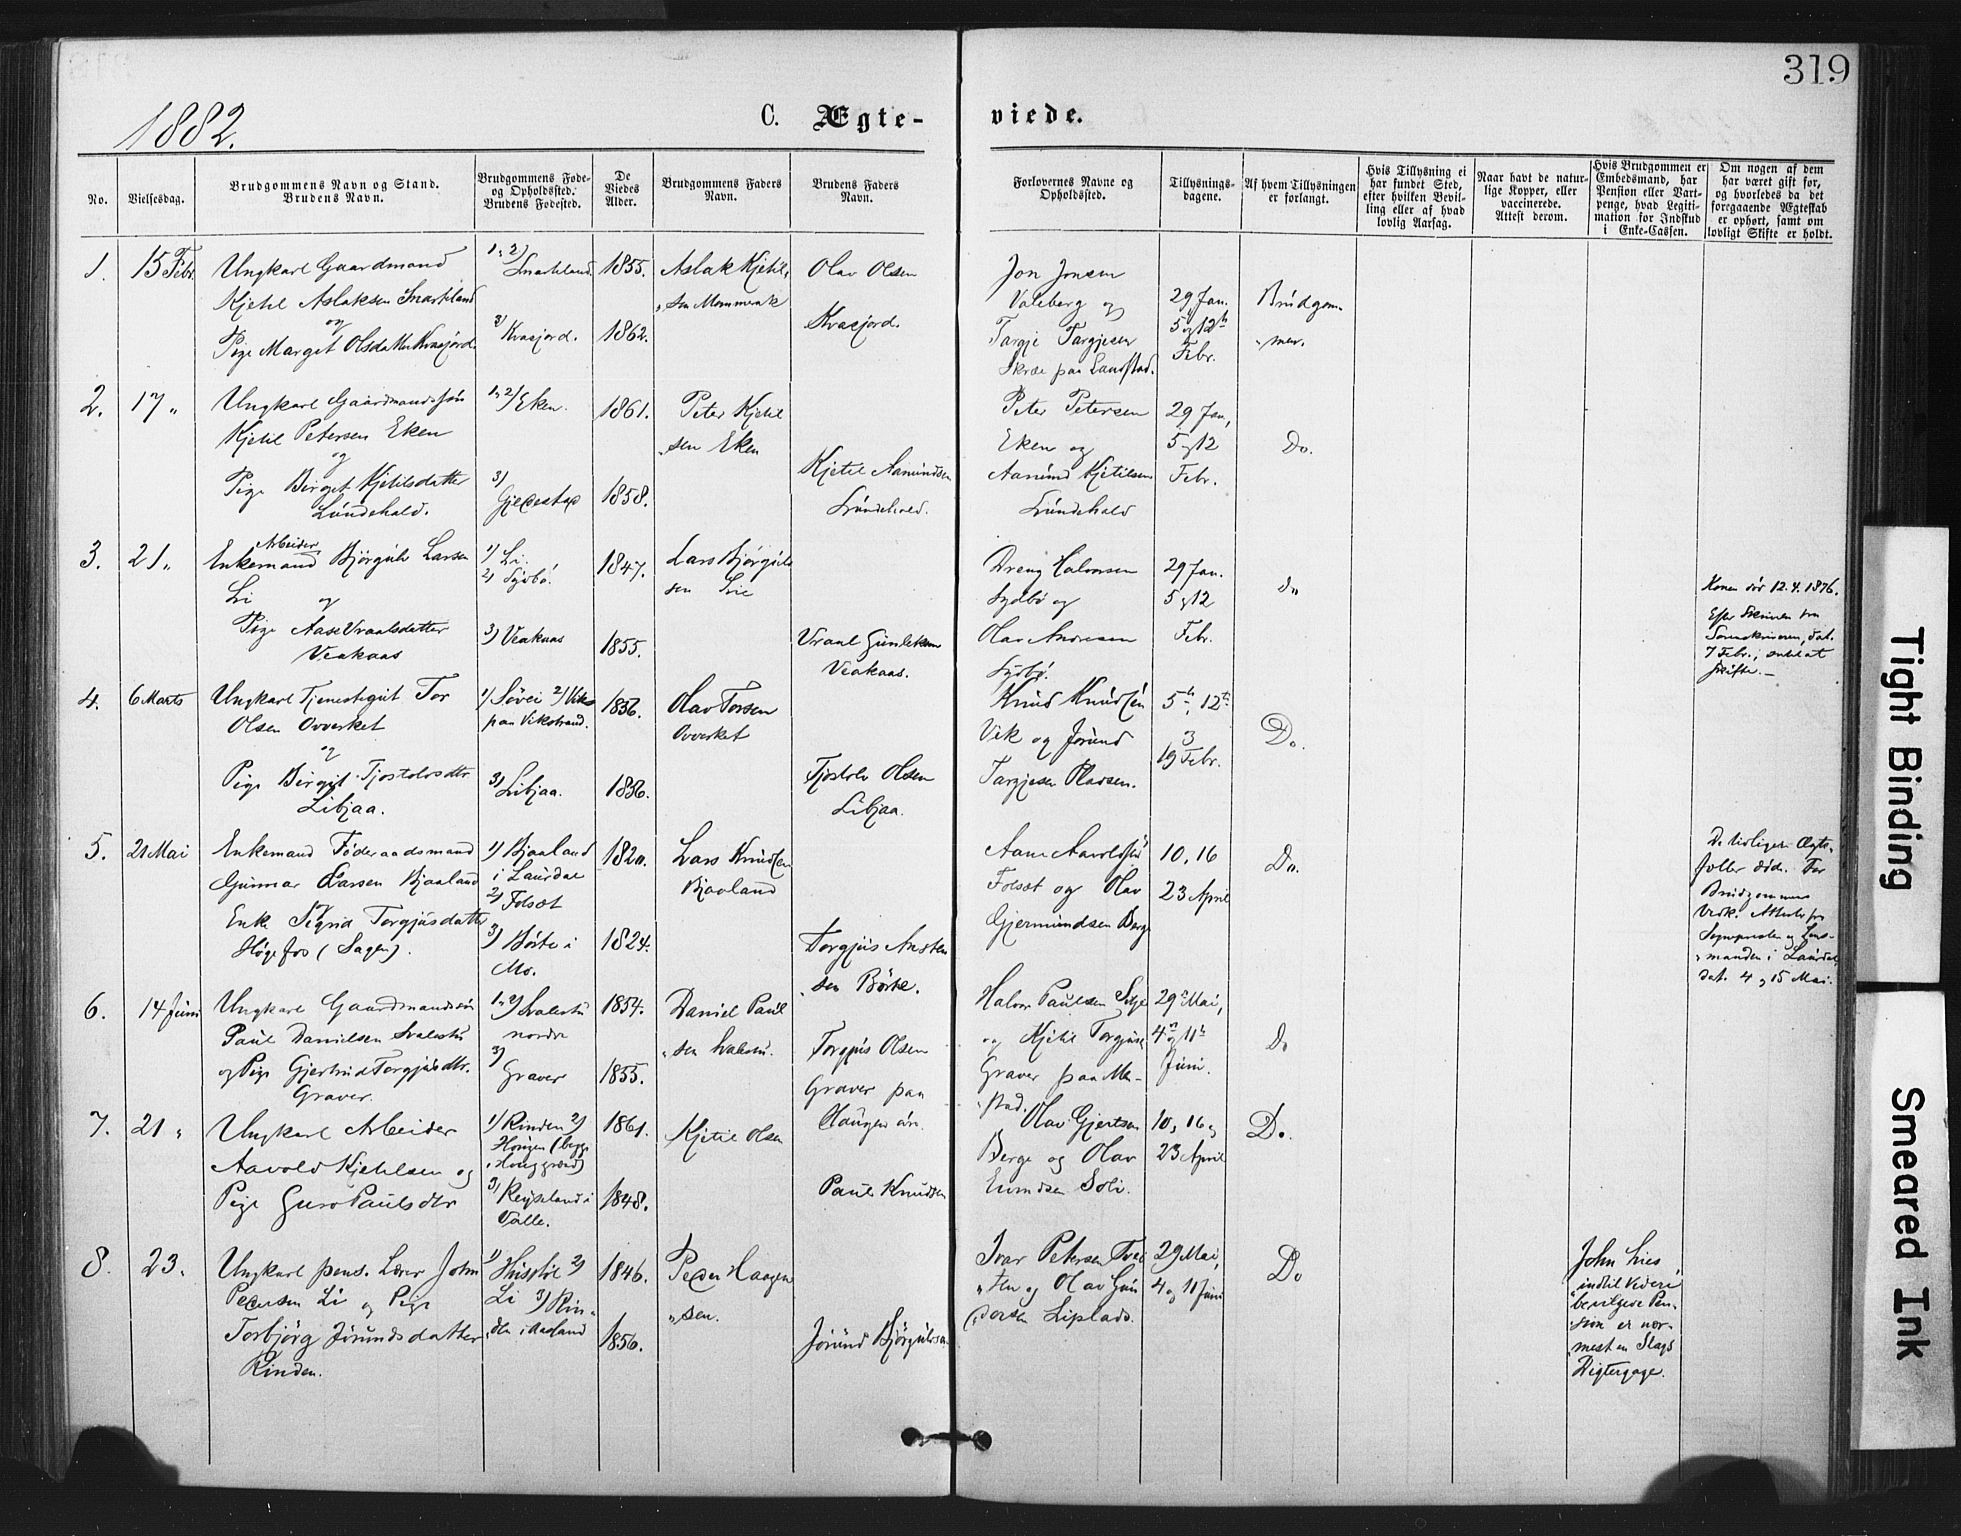 319
1882.
C. Ægte-
viede.
No.
Vielsesdag.
Brudgommens Navn og Stand.
Brudens Navn.
Brudgommens Føde-
og Opholdssted.
Brudens Fødested.
De
Viedes
Alder.
Brudgommens Faders
Navn.
Brudens Faders
Navn.
Forlovernes Navne og
Opholdssted.
Tillysnings-
dagene.
Af hvem Tillysningen
er forlangt.
Hvis Tillysning ei
har fundet Sted,
efter hvilken Bevil-
ling eller af hvad
lovlig Aarsag.
Naar havt de natur-
lige Kopper, eller
vaccinerede.
Attest derom.
Hvis Brudgommen er
Embedsmand, har
Pension eller Vart-
penge, hvad Legiti-
mation for Indskud
i Enke-Cassen.
Om nogen af dem
har været gift før,
og hvorledes da det
foregaaende Ægteskab
er ophørt, samt om
lovligt Skifte er holdt.
1.
15 Febr.
Ungkarl Gaardmand
Kjetil Aslaksen
og
Pige Margit Olsdatter Kvasjord.
1, 2)
3) Kvasjord.
1855.
1862.
Aslak Kjetil-
sen
Olav Olsen
Kvasjord.
Jon Jonsen
Valeberg og
Targje Targjesen
Skræ paa Landstad.
29 Jan.
5 og 12
Febr.
Brudgom-
men.
2.
17 "
Ungkarl Gaardmandssøn
Kjetil Petersen Eken
og
Pige Birget Kjetilsdatter
Lundehald.
1, 2) Eken.
3)
1861.
1858.
Peter Kjetil
sen Eken
Kjetil Aamundsen
Lundehald.
Peter Petersen
Eken og
Aamund Kjetilsen
Lundehald
29 Jan,
5 og 12
Febr.
Do.
3.
21 "
Arbeider
Enkemand Bjørgulv Larsen
Li og
Pige Aase Vraalsdatter
Veakaas
1) Li.
2) Sydbø.
3) Veakaas
1847.
1855.
Lars Bjørgulv
sen Lie
Vraal Gunleksen
Veakaas.
Dreng Halvorsen
Sydbø og
Olav Andresen
Sydbø.
29 Jan.
5 og 12
Febr.
Do
Konen dør 12.4.1876.
Efter Skrivn fra
Sorenskriveren, dat.
7 Febr.,
Skifte.—
4.
6 Marts
Ungkarl Tjenestegut Tor
Olsen Ovverket
og
Pige Birgit Tjostolvsdtr
Libjaa.
1) Søvei 2) Vik
paa Vikstrand.
3) Libjaa.
1836.
1836.
Olav Torsen
Ovverket
Tjostolv Olsen
Libjaa.
Knud Knudsen
Vik og Jørund
Targjesen Olavsen.
5, 12
19 Febr.
Do.
5.
21 Mai
Enkemand Føderaadsmand
Gunnar Larsen Bjaaland
og
Enke Signe Torgjusdatter
Høgefos (Sagen).
1) Bjaaland
i Laurdal
2) Folsæt
3) Børte i
Mo.
1820.
1824.
Lars Knudsen
Bjaaland
Torgjus Austen
sen Børte.
Folsæt og Olav
Gjermundsen Berge
10, 16
23 April
Do.
De tidligere Ægte-
foller døde. For
Brudgommens
Vedk. Attester fra
Sognepresten og Lens-
manden i Laurdal,
dat. 4 og 15 Mai.
6.
14 Juni
Ungkarl Gaardmandssøn
Paul Danielsen Svalestu
og Pige Gjertrud Torgjusdtr.
Graver.
1, 2) Svalestu
nordre
3)
Graver
1854.
1855.
Daniel Paul
sen Svalestu.
Torgjus Olsen
Graver paa
Haugen øvr.
Halvor Paulsen
og Kjetil Torgjusen
Graver paa
29 Mai,
4 og 11
Juni.
Do
7.
21 "
Ungkarl Arbeider
Aavold Kjetilsen og
Pige Guro Paulsdtr
1) Rinden 2)
Haugen (begge
i Hauggrend)
3) Rejseland i
Valle.
1861.
1848.
Kjetil Olsen
Paul Knudsen
Olav Gjertsen
Berge og Olav
10, 16 og
23 April
Do.
8.
23.
Ungkarl pens. Lærer John
Pedersen Li og Pige
Torbjørg Jørundsdatter
Rinden.
1) Husstøl 2)
Li 3) Rin-
den i Aaland
1846.
1856.
Peder Haagen
sen.
Jørund Bjørgulvsen
Ivar Petersen Tvei
ten og Olav Gun
29 Mai,
4 og 11 Juni
Do
John Lies,
indtil Videre
bevilgede Pen-
sion er nær-
mest en Slags
Digtergage.
Tight Binding
Smeared Ink